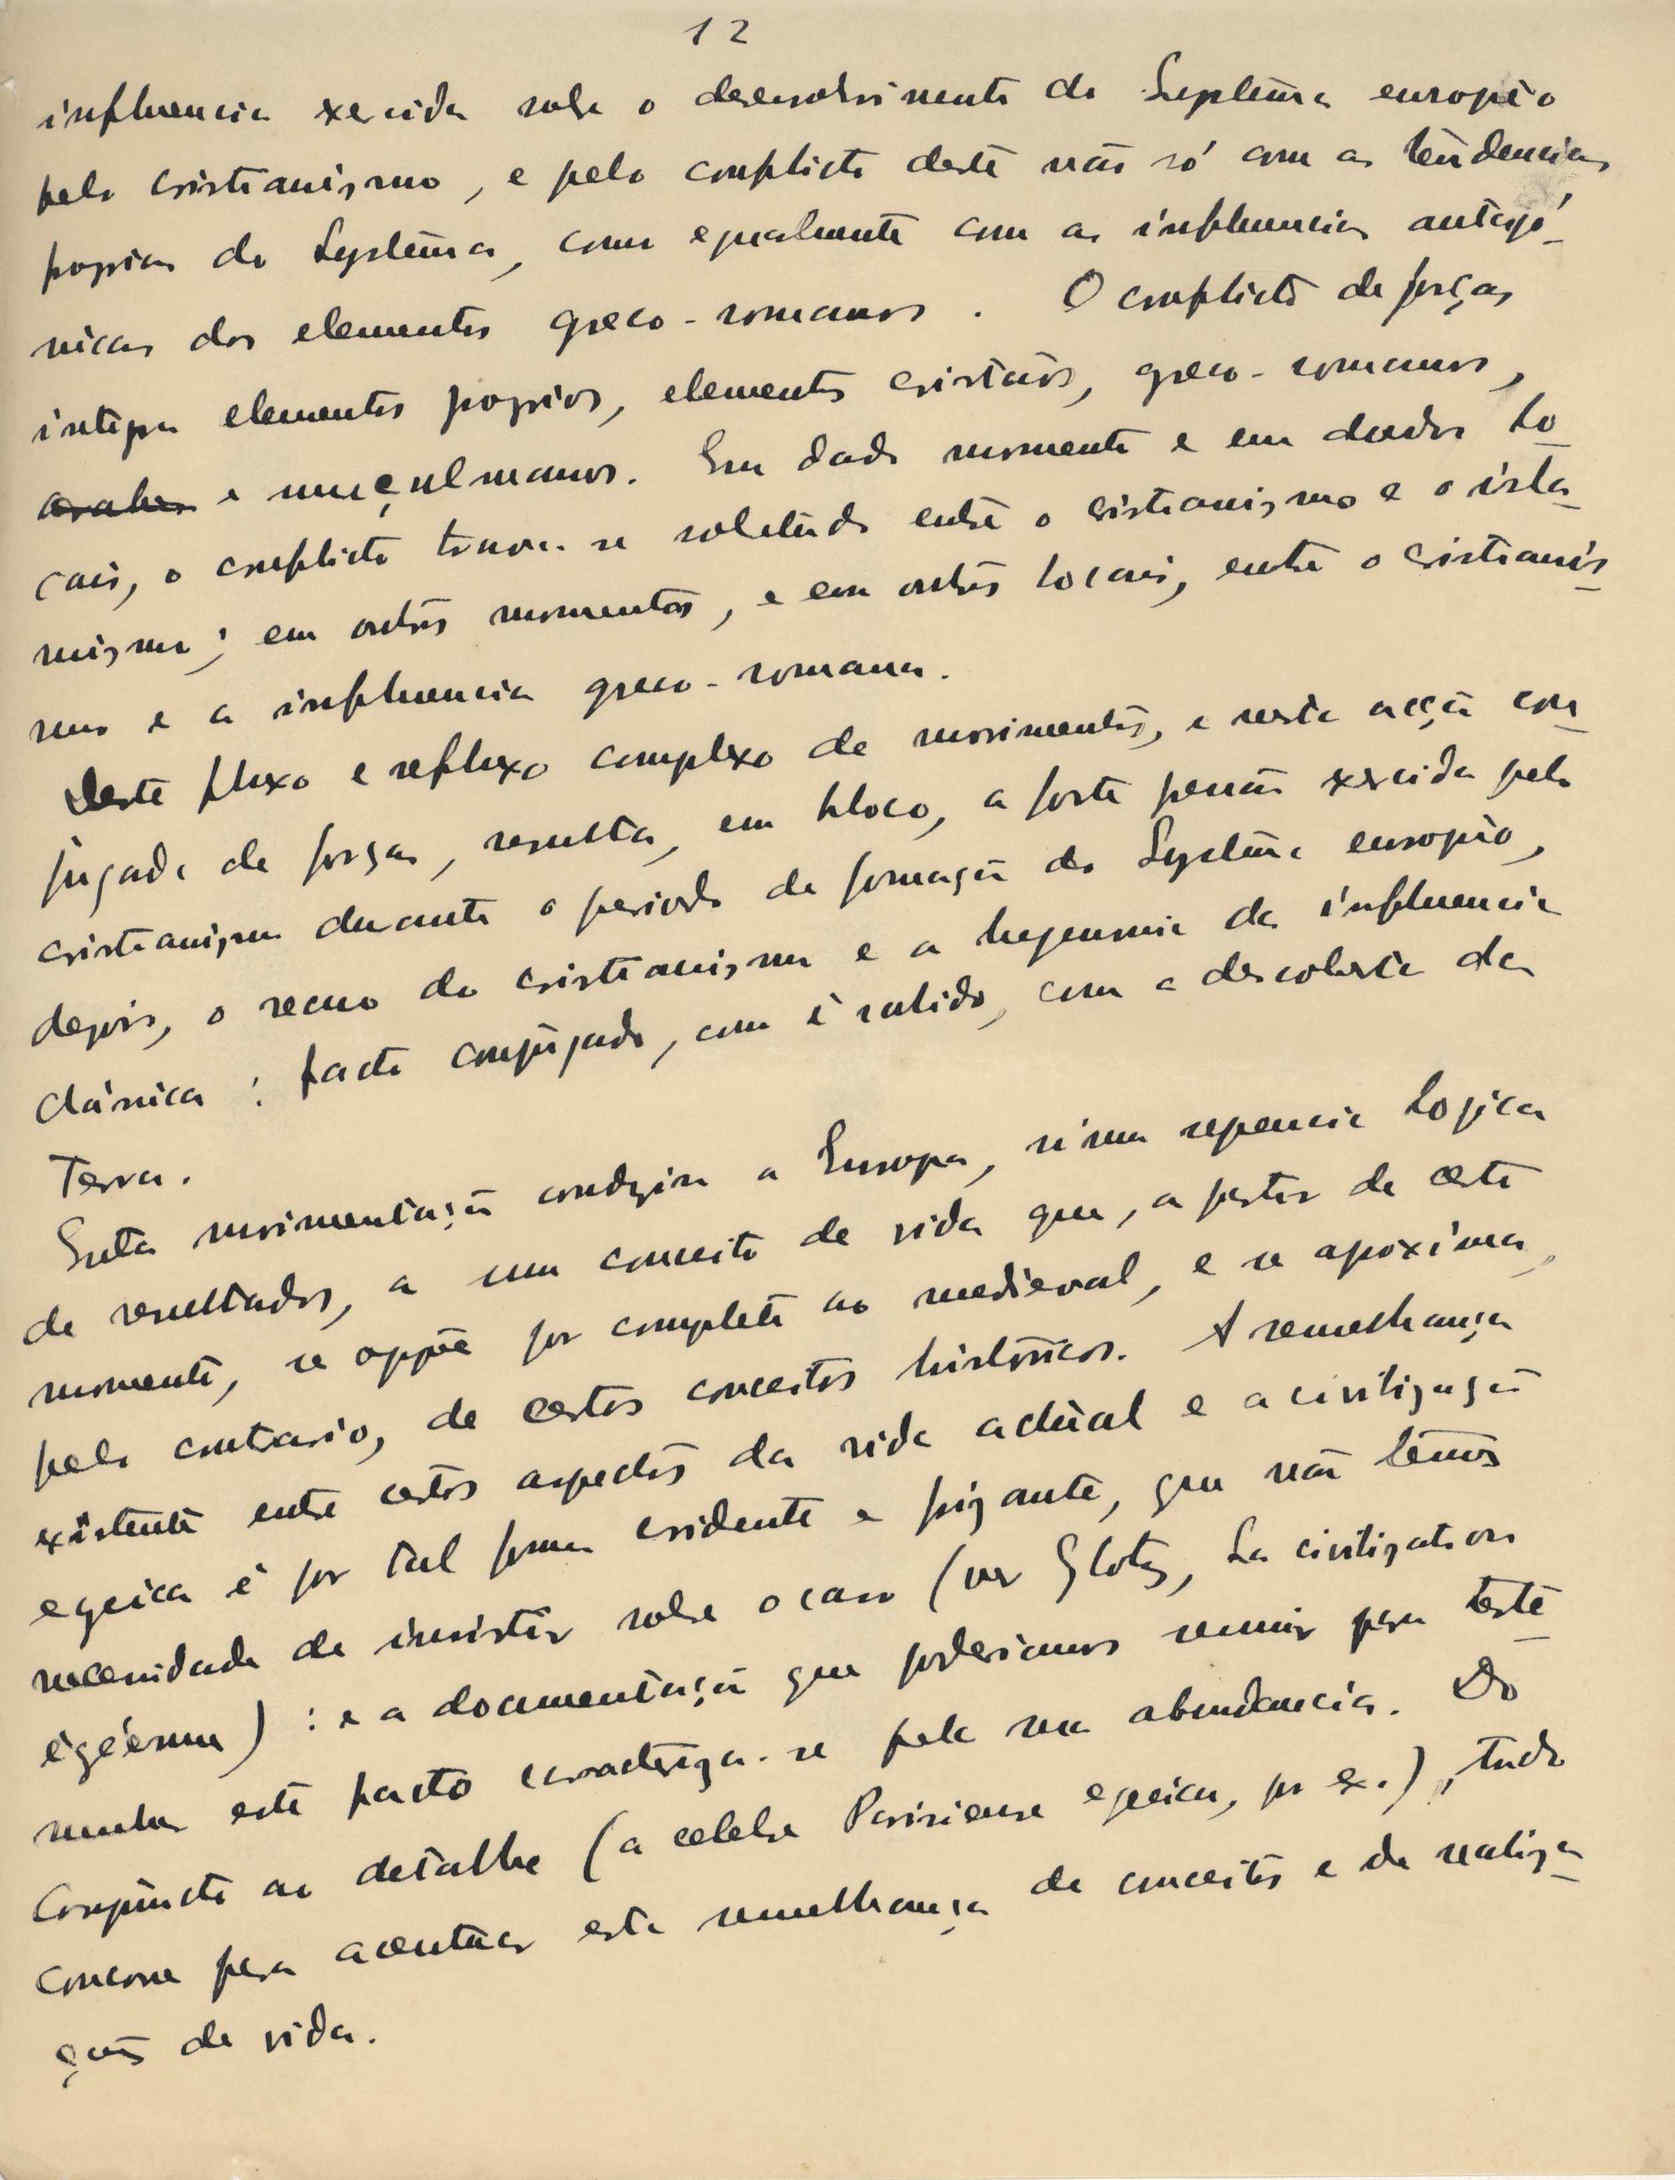 12
influencia exercida sobre o desenvolvimento do Systema europêo
pelo cristianismo, e pelo conflicto deste não só com as tendencias
proprias do Systema, como egualmente com as influencias antagó-
nicas dos elementos greco-romanos. O conflicto de forças
integra elementos proprios, elementos cristãos, greco-romanos,
arabes e muçulmanos. Em dado momento e em dados lo-
cais, o conflicto trava-se sobretudo entre o cristianismo e o isla-
mismo; em outros momentos, e em outros locais, entre o cristianis-
mo e a influencia greco-romana.
Deste fluxo e refluxo complexo de movimentos, e nesta acção con-
jugada de forças, resulta, em bloco, a forte pressão exercida pelo
cristianismo durante o periodo de formação do Systema europêo,
depois, o recuo do cristianismo e a hegemonia da influencia
clássica: facto conjugado, como é sabido, com a descoberta da
Terra.
Esta movimentação conduzira a Europa, n'uma sequencia logica
de resultados, a um conceito de vida que, a partir de certo
momento, se oppõe por completo ao medieval, e se aproxima,
pelo contrario, de certos conceitos históricos. A semelhança
existente entre certos aspectos da vida actual e a civilização
egeica é por tal forma evidente e frizante, que não temos
necessidade de insistir sobre o caso (ver Glotz, La civilization
égéenne): e a documentação que poderiamos reunir para teste-
munhar este facto caracteriza-se pela sua abundancia. Do
Conjuncto ao detalhe (a celebre Parisiense egeica, por ex.), tudo
concorre para acentuar esta semelhança de conceitos e de realiza-
ções de vida.